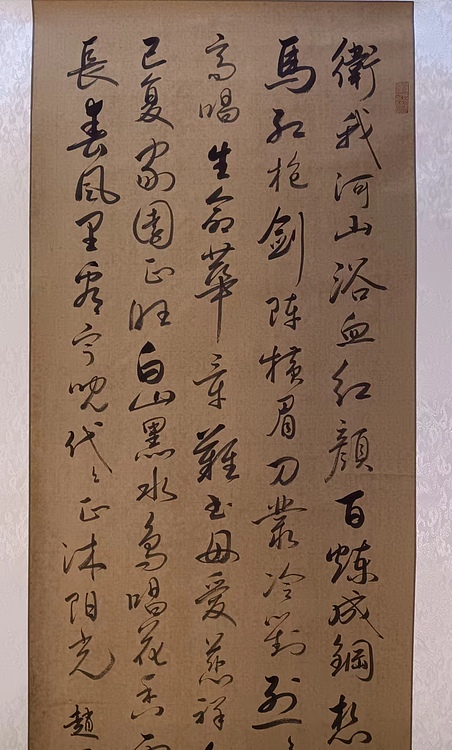 衛我河山浴血红顏百煉成鋼想
馬红枪劍陣橫眉刀叢冷對烈
高唱生命華章難书母愛慈祥
已复家園正旺白山黑水鳥唱花香
長春風里看宁代代正沐阳光 趙